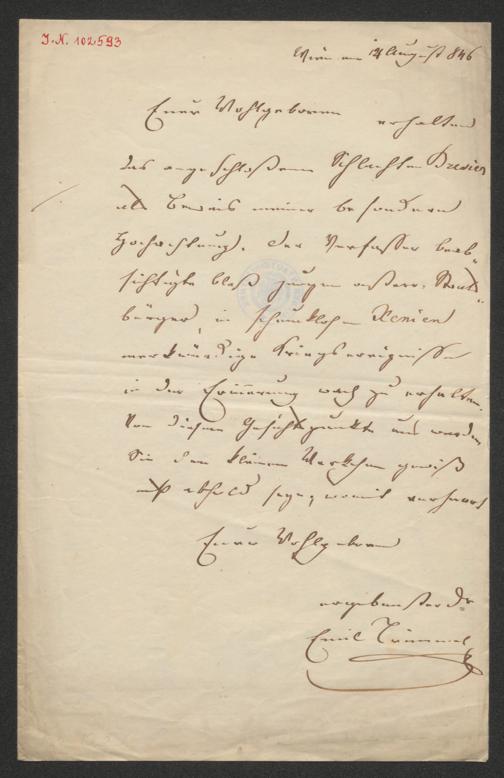 I.N. 102593
Wien am 12 August 846
Euer Wohlgeboren erhalten
das angeschloßene Schlachten Brevier
als Beweis meiner besondern
Hochachtung. Der Verfasser beab-
sichtigte bloß jungen österr. Staats-
bürger, in schmucklosen Xenien
merkwürdige Kriegsereignisse
in der Erinnerung wach zu erhalten.
Von diesem Gesichtspunkte aus werden
Sie dem kleinen Werkchen gewiß
nicht abhold seyn, womit verharrt
Euer Wohlgeboren
ergebenster Dr
Emil Trimmel